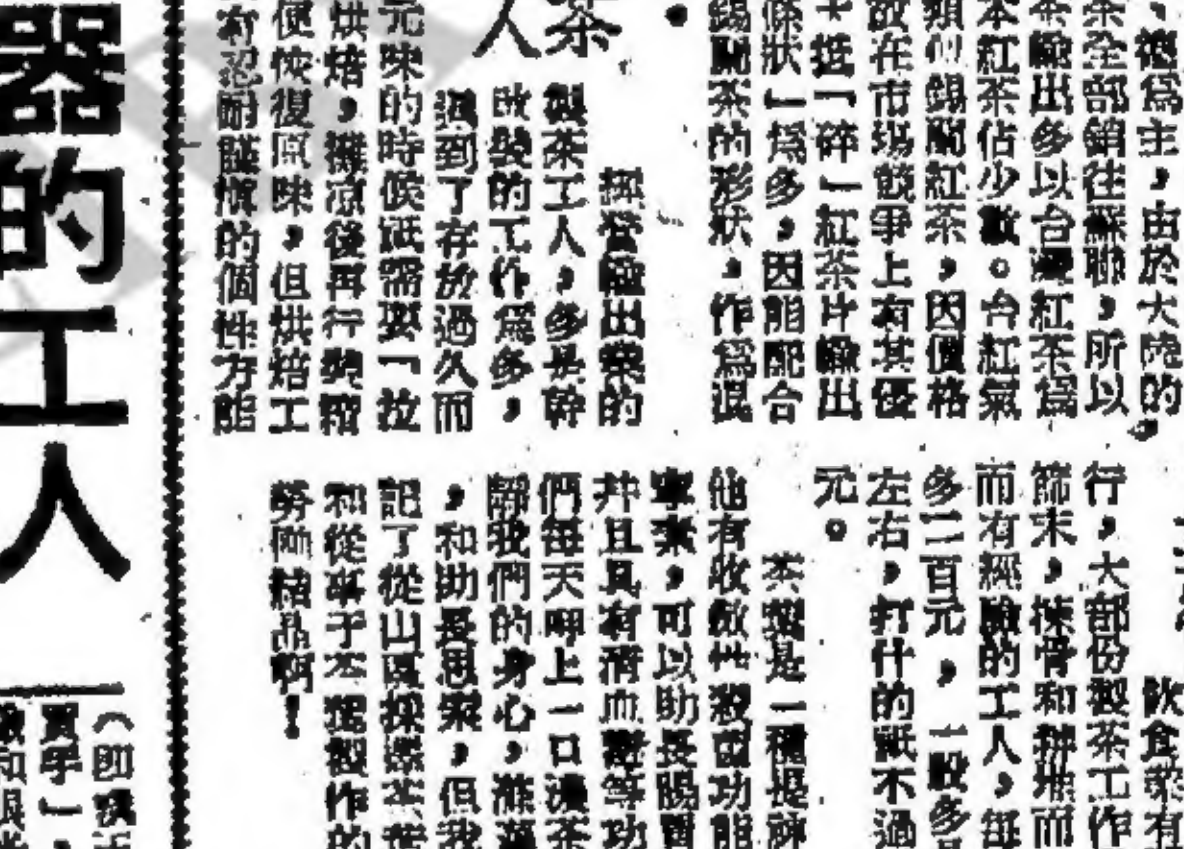 、德為主，由於大陸的
茶全部銷往蘇聯，所以
茶輸出多以台灣紅茶為
本紅茶佔少數。台紅氣
類似錫蘭紅茶，因價格
故在市場競爭上有其優
大抵「碎」紅茶片輸出
條狀」為多，因能配合
錫蘭茶的形狀，作為混
。
茶
人
出來的
製茶工人，多是幹
的工作為多，
到了存放過久而
元味的時候祇需要「拉
烘焙，攤涼後再行
便恢復原味，但烘焙工
有忍耐的個性方能
飲食菜有
行，大部份製茶工作
篩末，揀骨和
而有經驗的工人，每
多二百元，一般多
左右，打什的祇不過
元。
茶是一種提神
他有收斂性殺菌功能
，可以助長腸胃
并且具有清血等功
們每天呷上一口濃茶
我們的身心，
，和助長思索，但我
記了從山區採茶葉
和從事于本製作的
勞働精品啊！
器的工人
（即
買手」，
和